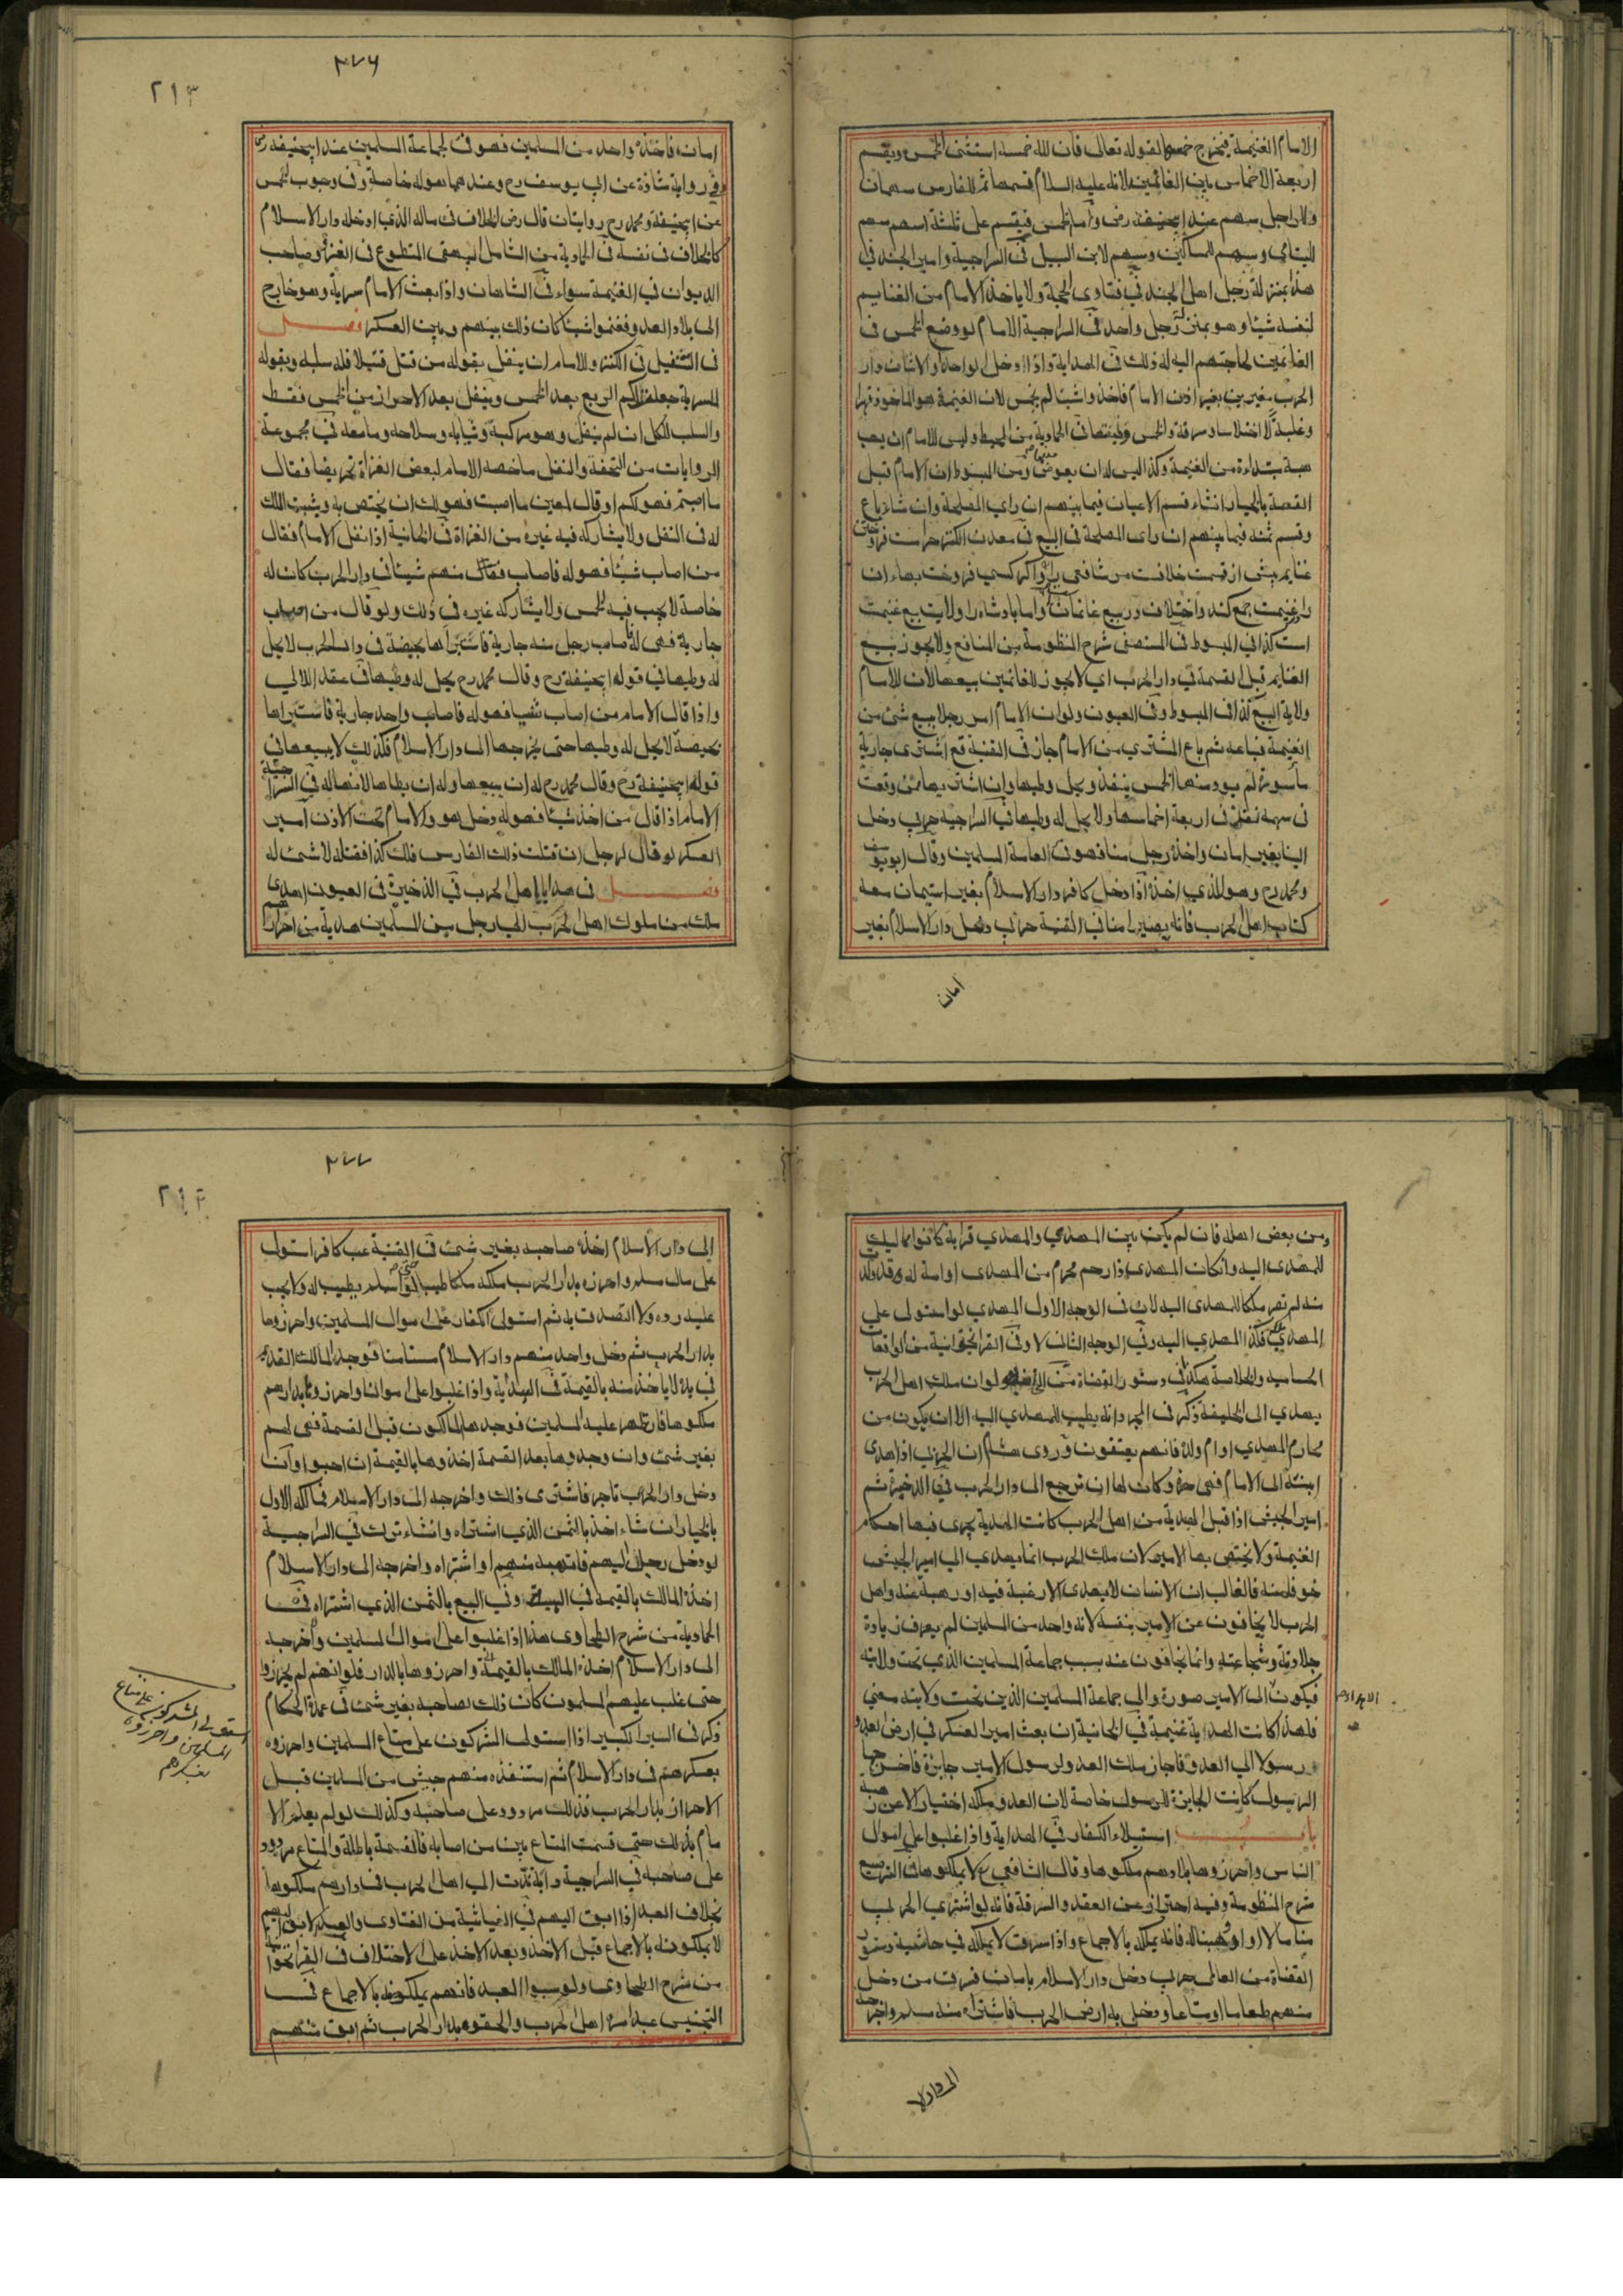 الامام الغنيمة فيخرج خمسها لقوله تعالى فان لله خمسه استثنى الخمس ويقسم
اربعة الاخماس بين الغانمين لانه عليه السلام قسمها ثم للفارس سهمان
وللراجل سهم عند ابيحنيفة رض واما الخمس فيقسم على ثلثة اسهم سهم
لليتامي وسهم للمساكين وسهم لابن السبيل في السراجية وامير الجند في
هذا بمنزلة رجل اهل الجند في فتاوى الحجة ولا ياخذ الامام من الغنايم
لنفسه شيئا وهو بمنزلة رجل واحد في السراجية الامام لو وضع الخمس في
الغانمين لحاجتهم اليه له ذلك في الهداية واذا دخل الواحد او الاثنان دار
الحرب مغيرين بغير اذن الامام فاخذوا شيئا لم يخمس لان الغنيمة هو الماخوذ قهرا
وغلبة لا اختلاسا وسرقة والخمس وظيفتها في الحمادية من المحيط وليس للامام ان يهب
هبة مبتداءة من الغنيمة وكذا ليس له ان يعوض ومن المبسوط ان الامام قبل
القسمة بالخيار ان شاء قسم الاعيان فيما بينهم ان راي المصلحة وان شاء باع
وقسم ثمنه فيما بينهم ان راى المصلحة في البيع في معدن الكنز
غنايم پيش از قسمت خلافست مر شافعي را واكر كسي فروخت بهاء ان
را در غنيمت جمع كند واختلاف در بيع غانمان است واما بادشاه را ولايت بيع غنيمت
است كذا في المبسوط في المستصفى شرح المنظومة من المنافع ولا يجوز بيع
الغنايم قبل القسمة في دار الحرب اي لا يجوز للغانمين بيعها لان للامام
ولاية البيع كذا في المبسوط وفي العيون ولو ان الامام امر رجلا ببيع شئ من
الغنيمة فباعه ثم باع المشتري من الامام جاز في القنية قع اشترى جارية
مأسورة لم يؤد منها الخمس ينفذ ويحل وطيها وان اشتريها ممن وقعت
في سهمه نفذ في اربعة اخماسها ولا يحل له وطيها في السراجية حربي دخل
الينا بغير امان واخذه رجل منا فهو لعامة المسلمين وقال ابو يوسف
ومحمد رح وهو للذي اخذه اذا دخل كافر دار الاسلام بغير استيمان معه
كتاب اهل الحرب فانه يصير امنا في القنية حربي دخل دار الاسلام بغير
امان
٣٧٦
٢١٣
امان فاخذه واحد من المسلمين فهو فئ لجماعة المسلمين عند ابيحنيفة رض
وفي رواية شاذة عن ابي يوسف رح وعندهما هو له خاصة وفي وجوب الخمس
عن ابيحنيفة ومحمد رح روايتان قال رض الخلاف في ماله الذي ادخله دار الاسلام
كالخلاف في نفسه في الحمادية من الشامل لبيهقي المتطوع في الغزو وصاحب
الديوان في الغنيمة سواء في الشاهان واذا بعث الامام سرية وهو خارج
الى بلاد العدو فغنموا شيئا كان ذلك بينهم وبين العسكر فصل
في التنفيل في الكنز وللامام ان ينفل بقوله من قتل قتيلا فله سلبه وبقوله
للسرية جعلت لكم الربع بعد الخمس وينفل بعد الاحراز من الخمس فقط
والسلب للكل ان لم ينفل وهو مركبه وثيابه وسلاحه وما معه في مجموعة
الروايات من التحفة والنفل ما خصه الامام لبعض الغزاة تحريضا فقال
ما اصبتم فهو لكم او قال لمعين ما اصبت فهو لك ان يختص به ويثبت الملك
له في النفل ولا يشاركه فيه غيره من الغزاة في الخانية اذا نفل الامام فقال
من اصاب شيئا فهو له فاصاب منهم شيئا في دار الحرب كان له
خاصة لا يجب فيه الخمس ولا يشاركه غيره في ذلك ولو قال من اصاب
جارية فهي له فاصاب رجل منه جارية فاستبراها بحيضة في دار الحرب لا يحل
له وطيها في قول ابيحنيفة رح وقال محمد رح يحل له وطيها في عقد اللالي
واذا قال الامام من اصاب شيئا فهو له فاصاب واحد جارية فاستبراها
بحيضة لا يحل له وطيها حتى يخرجها الى دار الاسلام فكذلك لا يبيعها في
قول ابيحنيفة رح وقال محمد رح له ان يبيعها وله ان يطاها لانها له في السراجية
الامام اذا قال من اخذ شيئا فهو له دخل هو والامام تحت الاذن امير
العسكر لو قال لرجل ان قتلت ذلك الفارس فلك كذا فقتله لا شئ له
فصل في هدايا اهل الحرب في الذخيرة في العيون اهدى
ملك من ملوك اهل الحرب الى رجل من المسلمين هدية من احرارهم
ومن بعض اهله فان لم يكن بين المهدي والمهدي قرابة كانوا مماليك
للمهدى اليه وانكان المهدى ذا رحم محرم من المهدى او امة له وقد ولدت
منه لم تصر ملكا للمهدى اليه لان في الوجه الاول المهدي لو استولى علي
المهدي ملكه فكذا المهدي اليه وفي الوجه الثاني لا وفي القراخانية من الواقعات
الحساميه والخلاصة هكذا في دستور القضاة من ولو ان ملك اهل الحرب
يهدي الى الخليفة ذكر في المجرد انه يطيب للمهدي اليه الا ان يكون من
محارم المهدي او ام ولد فانهم يعتقون وروى هشام ان الحربي اذا اهدى
ابنته الى الامام فهي حرة وكان لها ان ترجع الى دار الحرب في الذخيرة ثم
امير الجيش اذا قبل الهدية من اهل الحرب كانت الهدية يجرى فيها احكام
الغنيمة ولا يختص بها الامير لان ملك الحرب انما يهدي الي امير الجيش
خوفا منه فالغالب ان الانسان لا يهدى الا رغبة فيه او رهبة عنه واهل
الحرب لا يخافون عن الامير بنفسه لانه واحد من المسلمين لم يعرف زيادة
جلادته وشجاعته وانما يخافون عنه بسبب جماعة المسلمين الذي تحت ولايته
فيكون الى الامير صورة والى جماعة المسلمين الذين تحت ولايته معني
فلهذا كانت الهداية غنيمة في الخانية ان بعث امير العسكر في ارض العدو
رسولا الي العدو فاجاز ملك العدو لرسول الامير جايزة فاخرجها
الرسول كانت الجايزة للرسول خاصة لان العدو ملكه اختيارا لا عن رهبة
باب استيلاء الكفار في الهداية واذا غلبوا على اموال
الناس واحرزوها بلادهم ملكوها وقال الشافعي رح لا يملكوها في الترصيع
شرح المنظومة وفيه احتراز عن العقد والسرقة فانه لو اشتري الحربي
منا مالا او اوهبنا له فانه يملكه بالاجماع واذا سرقت لا يملكه في حاشية دستور
القضاة من العالي حربي دخل دار الاسلام بامان فسرق من دخل
منهم طعاما او متاعا ودخل به ارض الحرب فاشتراه منه مسلم واخرجه
الى دار الا
٣٧٧
٢١٤
الى دار الاسلام اخذه صاحبه بغير شئ في القنية عب كافر استولى
على مال مسلم واحرزه بدار الحرب ملكه ملكا طيبا اسلم يطيب له ولا يجب
عليه رده ولا التصدق به ثم استولى الكفار على اموال المسلمين واحرزوها
بدار الحرب ثم دخل واحد منهم دار الاسلام مستامنا فوجد المالك القديم
في يده لا ياخذ منه بالقيمة في الهداية واذا غلبوا على اموالنا واحرزوها بدارهم
ملكوها فان ظهر عليه المسلمين فوجدها المالكون قبل القسمة فهي لهم
بغير شئ وان وجدوها بعد القسمة اخذوها بالقيمة ان احبوا وان
دخل دار الحرب تاجر فاشترى ذلك واخرجه الى دار الاسلام فمالكه الاول
بالخيار ان شاء اخذ بالثمن الذي اشتراه وانشاء ترك في السراجية
لو دخل رجل اليهم فاتهبه منهم او اشتراه واخرجه الى دار الاسلام
اخذه المالك بالقيمة في الهبة وفي البيع بالثمن الذي اشتراه في
الحمادية من شرح الطحاوى هذا اذا غلبوا على اموال المسلمين واخرجه
الى دار الاسلام اخذه المالك بالقيمة واحرزوها بالدار فلو انهم لم يحرزوا
حتى غلب عليهم المسلمون كان ذلك لصاحبه بغير شئ في عمدة الحكام
ذكر في السير الكبير اذا استولى المشركون على متاع المسلمين واحرزوه
بعسكرهم في دار الاسلام ثم استنقذه منهم جيش من المسلمين قبل
الاحراز بدار الحرب فذلك مردود على صاحبه وكذلك لو لم يعلم الا
مام بذلك حتى قسمت المتاع بين من اصابه فالقسمة باطلة والمتاع مردود
على صاحبه في السراجية دابة ندّت الى اهل الحرب في دارهم ملكوها
بخلاف العبد اذا ابق اليهم في الغياثية من الفتاوى والعبد الابق اليهم
لا يملكونه بالاجماع قبل الاخذ وبعد الاخذ على الاختلاف في القراخانية
من شرح الطحاوى ولو سبوا العبد فانهم يملكونه بالاجماع في
التجنيس عبد اسره اهل الحرب والحقوه بدار الحرب ثم ابق منهم
استولى المشركون على متاع
المسلمين واحرزوه
بعسكرهم